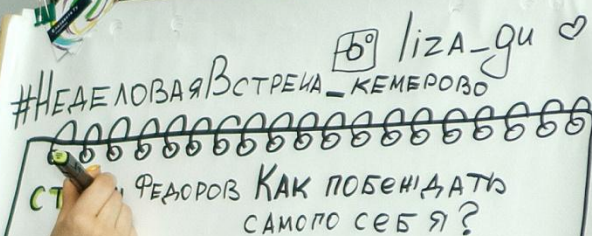 liza_gu
#НеделоваяВстреча_кемерово
Федоров Как побеждать
самого себя?